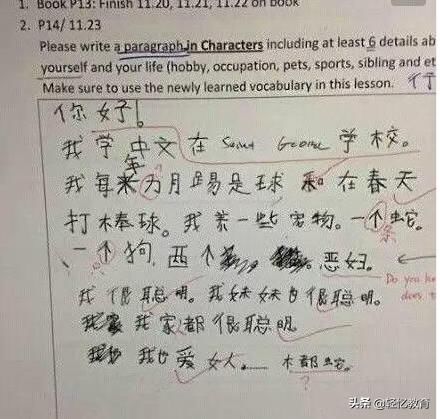 1. Book P13: Finish 11.20, 11.21, 11.22 on book
2. P14/ 11.23
Please write a paragraph in Characters including at least 6 details ab
yourself and your life (hobby, occupation, pets, sports, sibling and et
Make sure to use the newly learned vocabulary in this lesson.
你好!
我学中文在 学校。
年
我每来万月踢足球和在春天
打棒球。我养一些宠物。一个蛇。
条
一个狗,西个 恶妇。
Do you
我很聪明。我妹妹也很聪明。
does
我家都很聪明
我也爱 木都蛇。
?
头条 @轻忆教育